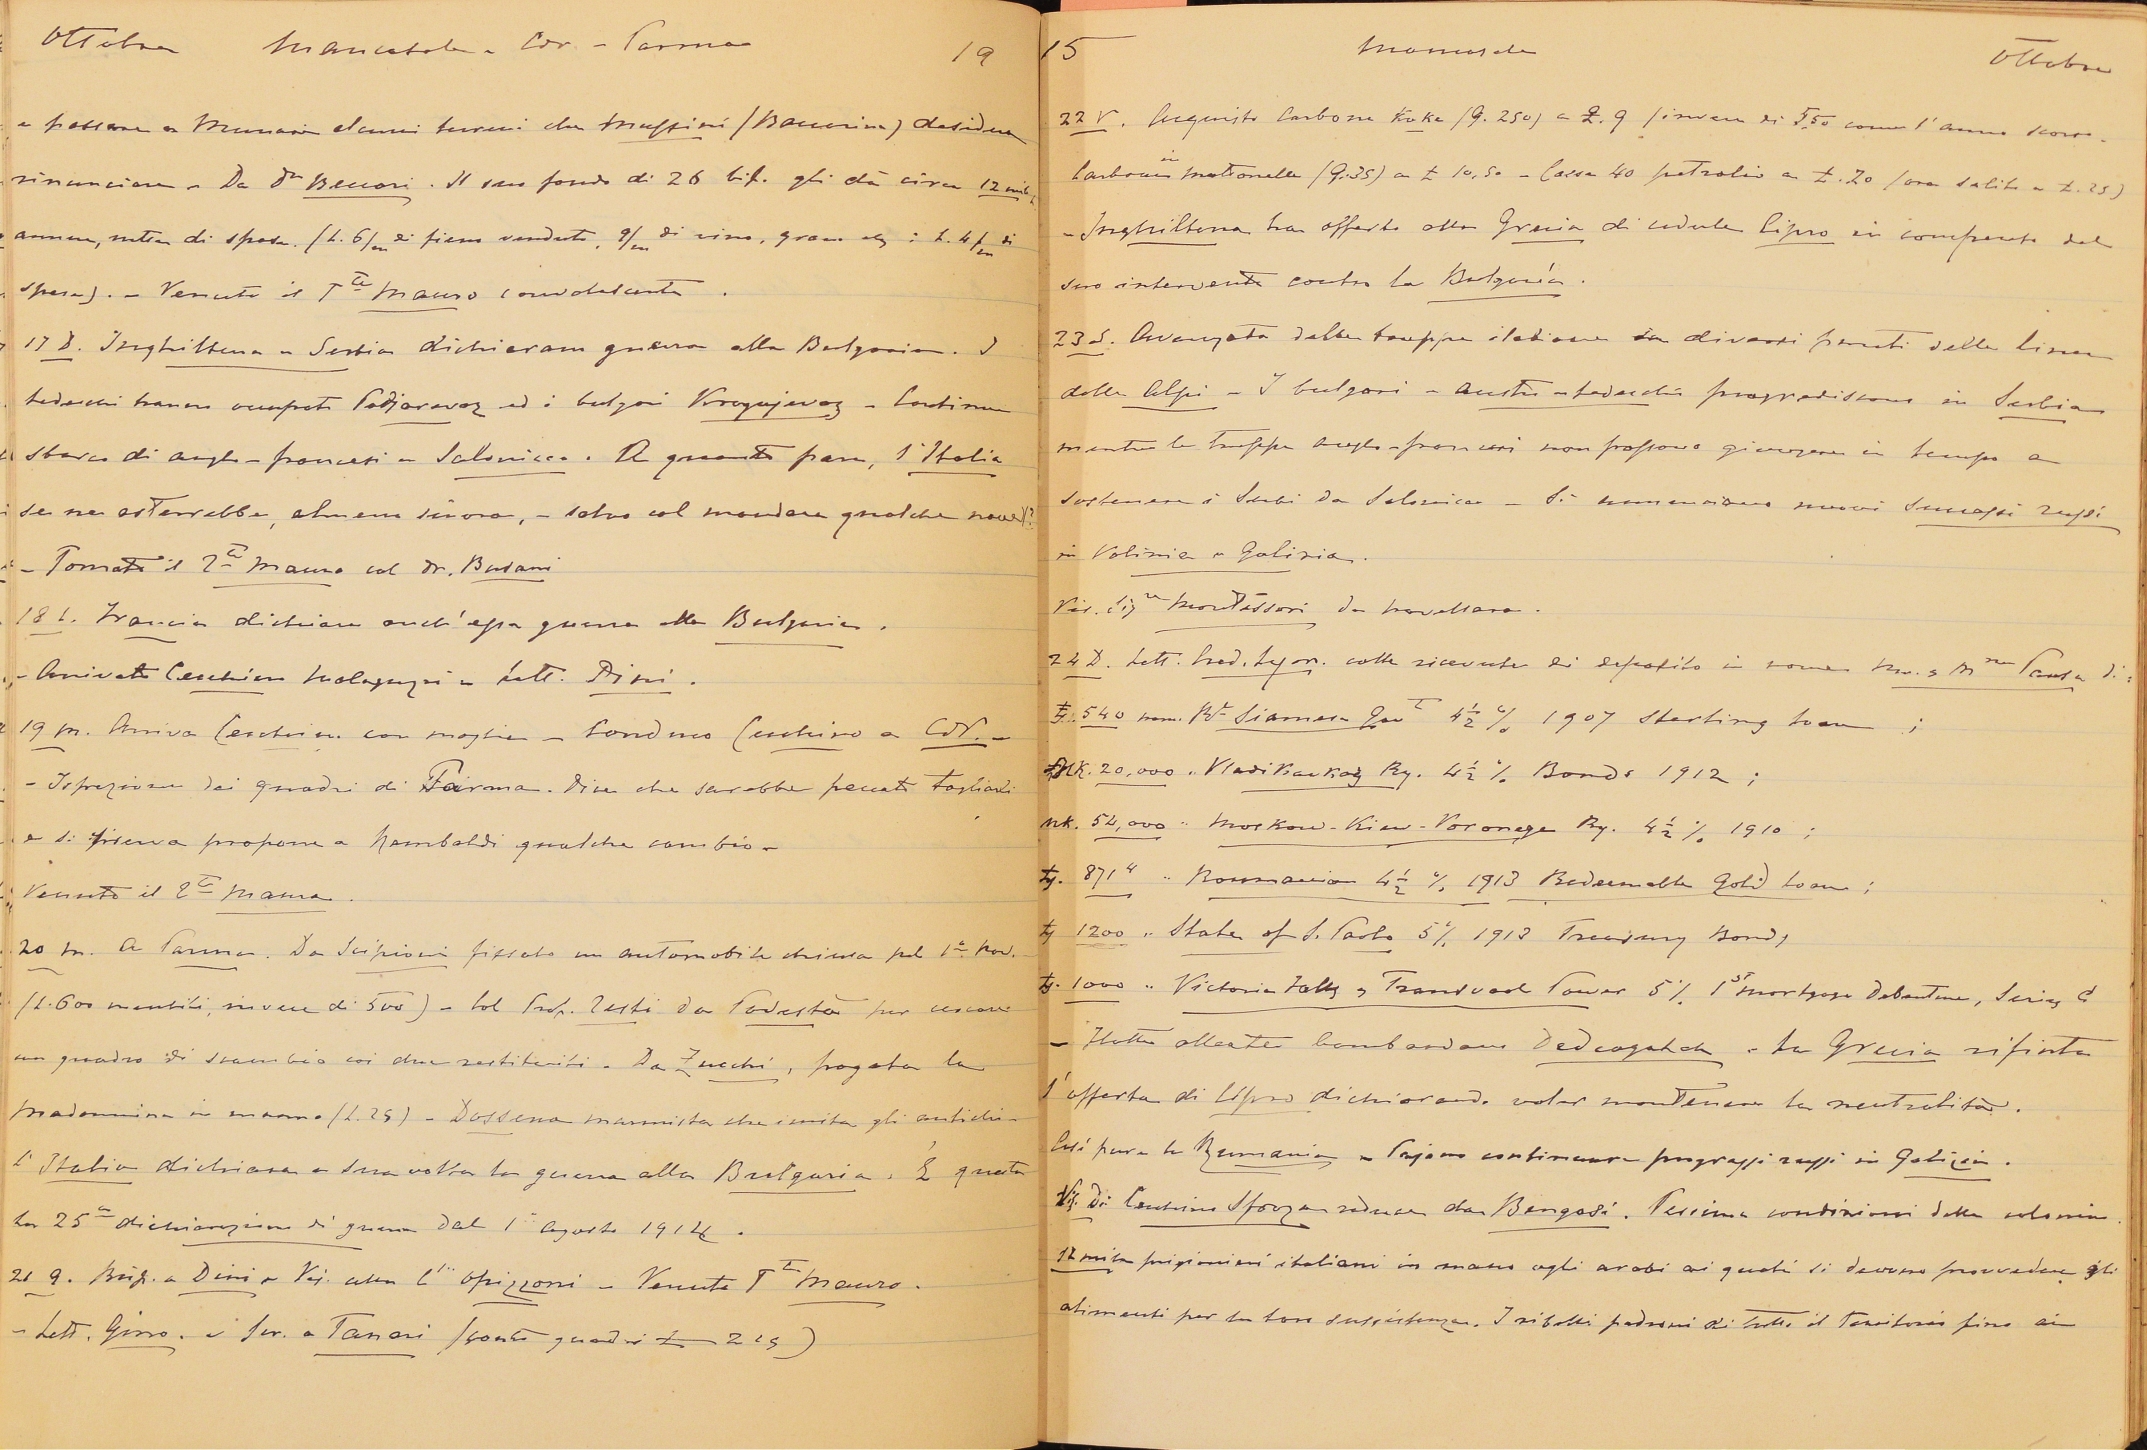 Ottobre Mamiano - Cdr - Parma 19
a passare a Munari alcuni terreni che Muffini (Baccarina) desidera
rinunciare - Da Dn Beccari. Il suo fondo di 26 bif. gli dà circa 12 mila
annue, nette di spese. (L. 6/m di fieno venduto, 9/m di vino, grano : L. 4/m di
spese). - Venuto il Tte Mauro convalescente.
17 D. Inghilterra e Serbia dichiarano guerra alla Bulgaria. I
tedeschi hanno occupato Podjarevaz ed i bulgari Kragujevaz - Continua
sbarco di anglo-francesi a Salonicco. A quanto pare, l'Italia
se ne asterrebbe, almeno sinora, - salvo col mandare qualche nave (?)
- Tornato il Tte Mauro col Dr. Busani
18 L. Francia dichiara anch'essa guerra alla Bulgaria.
- Arrivato Cecchino Malaguzzi - Lett. Dini.
19 M. Arriva Cecchino con moglie - Conduco Cecchino a CdR. -
- Ispezione dei quadri di Parma. Dice che sarebbe peccato toglierli
e si riserva proporre a Rambaldi qualche cambio -
Venuto il Tte Mauro.
20 M. A Parma. Da Scipioni fissato un automobile chiusa pel 1° Nov.
(L. 600 mensili, invece di 500) - Col Prof. Testi da Podestà per cercare
un quadro di scambio coi due restituiti - Da Zucchi, pagata la
Madonnina in marmo (L. 25) - Dossena marmista che imita gli antichi -
L'Italia dichiara a sua volta la guerra alla Bulgaria. È questa
la 25a dichiarazione di guerra dal 1° Agosto 1914.
21 G. a Dini - Vis. alla Css Opizzoni - Venuto Tte Mauro.
- Lett. Gino. - Scr. a Tanari (conto quadri L 215)
15 Mamiano Ottobre
22 V. Acquisto Carbone Koke (Q. 250) a L. 9 (invece di 5,50 come l'anno scorso -
Carbone in mattonelle (Q. 35) a L 10,50 - Casse 40 petrolio a L. 20 (ora salito a L. 25)
- Inghilterra ha offerto alla Grecia di cederle Cipro in compenso del
suo intervento contro la Bulgaria.
23 S. Avanzata delle truppe italiane in diversi punti della linea
delle Alpi - I bulgari - austro-tedeschi progrediscono in Serbia
mentre le truppe anglo-francesi non possono giungere in tempo a
sostenere i Serbi da Salonicco - Si annunciano nuovi successi russi
in Volinia e Galizia.
Vis. Sigra Montessori da Novellara.
24 D. Lett. Cred. Lyon. colle ricevute di deposito in nome M. & Mme Paola di:
Lg. 540 nom. Rl Siamese Govt 4½ % 1907 Sterling Loan ;
Mk. 20,000 " Vladikavkaz Ry. 4½ % Bonds 1912 ;
Mk. 54,000 " Moskow-Kiew-Voronege Ry. 4½ % 1910 ;
Lg. 871.4 " Roumanian 4½ % 1913 Redeemable Gold Loan ;
Lg 1200 " State of S. Paolo 5% 1913 Treasury Bonds
Lg. 1000 " Victoria Falls & Transvaal Power 5% 1st Mortgage Debenture, Series C
- Flotte alleate bombardano Dedeagatch - La Grecia rifiuta
l'offerta di Cipro dichiarando voler mantenere la neutralità.
Così pure la Rumania - Pajono continuare progressi russi in Galizia.
Vis. di Cecchino Sforza reduce da Bengasi. Pessime condizioni della colonia.
12 mila prigionieri italiani in mano agli arabi ai quali si devono provvedere gli
alimenti per la loro sussistenza. I ribelli padroni di tutto il territorio fino ai